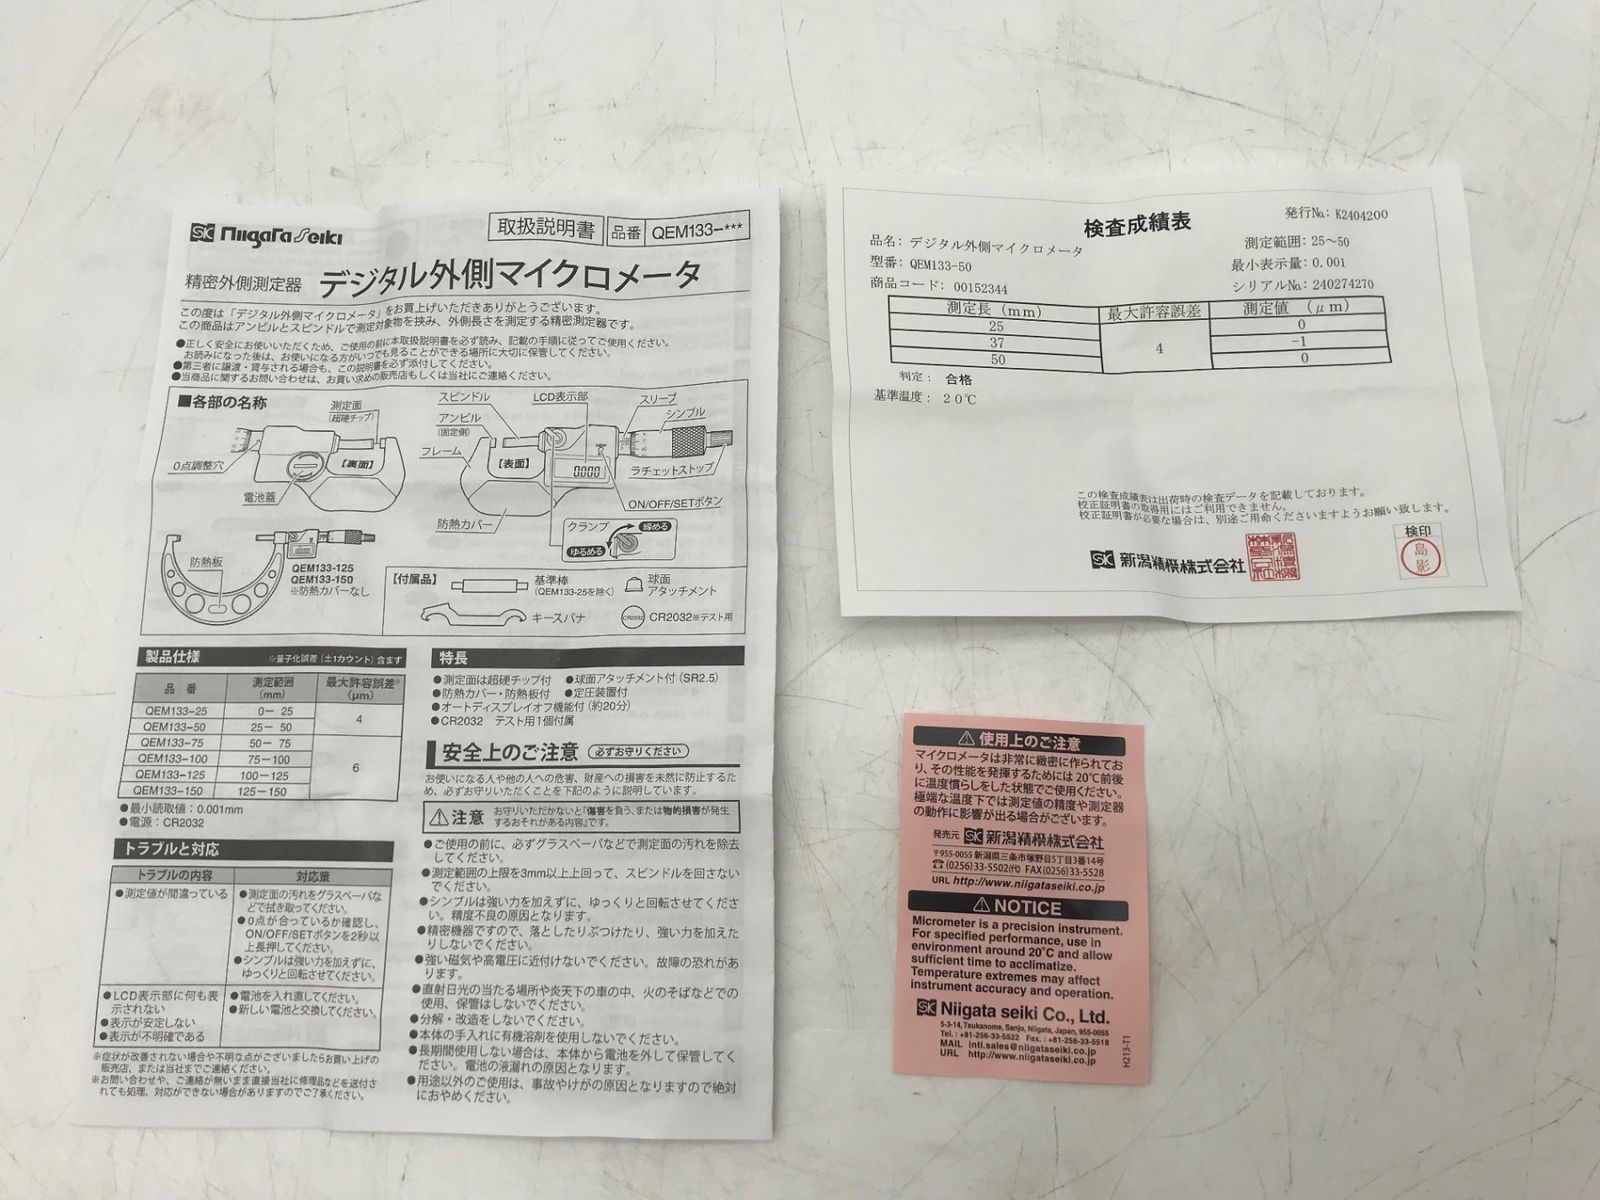 SK Niigata Seiki
取扱説明書
品番 QEM133-***
精密外側測定器 デジタル外側マイクロメータ
この度は「デジタル外側マイクロメータ」をお買上げいただきありがとうございます。
この商品はアンビルとスピンドルで測定対象物を挟み、外側長さを測定する精密測定器です。
●正しく安全にお使いいただくため、ご使用の前に本取扱説明書を必ず読み、記載の手順に従ってご使用ください。
お読みになった後は、お使いになる方がいつでも見ることができる場所に大切に保管してください。
●第三者に譲渡・貸与される場合も、この説明書を必ず添付してください。
●当商品に関するお問い合わせは、お買い求めの販売店もしくは当社にご連絡ください。
■各部の名称
測定面
(超硬チップ)
0点調整穴
【裏面】
電池蓋
スピンドル
LCD表示部
スリーブ
シンブル
アンビル
(固定側)
フレーム
【表面】
0.000
ラチェットストップ
ON/OFF/SETボタン
防熱カバー
クランプ
締める
ゆるめる
防熱板
QEM133-125
QEM133-150
※防熱カバーなし
【付属品】
基準棒
(QEM133-25を除く)
球面
アタッチメント
キースパナ
CR2032
CR2032※テスト用
製品仕様 ※量子化誤差(±1カウント)含まず
品 番 測定範囲(mm) 最大許容誤差※(μm)
QEM133-25 0− 25 4
QEM133-50 25− 50
QEM133-75 50− 75 6
QEM133-100 75−100
QEM133-125 100−125
QEM133-150 125−150
●最小読取値：0.001mm
●電源：CR2032
トラブルと対応
トラブルの内容 対応策
●測定値が間違っている
●測定面の汚れをグラスペーパなどで拭き取ってください。
●0点が合っているか確認し、ON/OFF/SETボタンを2秒以上長押してください。
●シンブルは強い力を加えずに、ゆっくりと回転させてください。
●LCD表示部に何も表示されない
●表示が安定しない
●表示が不明確である
●電池を入れ直してください。
●新しい電池と交換してください。
※症状が改善されない場合や不明な点がございましたらお買い上げの
販売店、または当社までご連絡ください。
※お問い合わせや、ご連絡が無いまま直接当社に修理品などを送付さ
れても処理、対応ができない場合がありますのでご了承ください。
特長
●測定面は超硬チップ付 ●球面アタッチメント付(SR2.5)
●防熱カバー・防熱板付 ●定圧装置付
●オートディスプレイオフ機能付(約20分)
●CR2032 テスト用1個付属
安全上のご注意 必ずお守りください
お使いになる人や他の人への危害、財産への損害を未然に防止するた
め、必ずお守りいただくことを下記のように説明しています。
⚠注意 お守りいただかないと『傷害を負う、または物的損害が発生
するおそれがある内容』です。
●ご使用の前に、必ずグラスペーパなどで測定面の汚れを除去
してください。
●測定範囲の上限を3mm以上上回って、スピンドルを回さない
でください。
●シンブルは強い力を加えずに、ゆっくりと回転させてくださ
い。精度不良の原因となります。
●精密機器ですので、落としたりぶつけたり、強い力を加えた
りしないでください。
●強い磁気や高電圧に近付けないでください。故障の恐れがあ
ります。
●直射日光の当たる場所や炎天下の車の中、火のそばなどでの
使用、保管はしないでください。
●分解・改造をしないでください。
●本体の手入れに有機溶剤を使用しないでください。
●長期間使用しない場合は、本体から電池を外して保管してく
ださい。電池の液漏れの原因となります。
●用途以外のご使用は、事故やけがの原因となりますので絶対
におやめください。
検査成績表
発行No.: K2404200
品名: デジタル外側マイクロメータ
測定範囲: 25～50
型番: QEM133-50
最小表示量: 0.001
商品コード: 00152344
シリアルNo.: 240274270
測定長 (mm) 最大許容誤差 測定値 (μm)
25 4 0
37 -1
50 0
判定: 合格
基準温度: 20℃
この検査成績表は出荷時の検査データを記載しております。
校正証明書の取得用にはご利用できません。
校正証明書が必要な場合は、別途ご用命くださいますようお願い致します。
SK 新潟精機株式会社
検印
島影
⚠使用上のご注意
マイクロメータは非常に緻密に作られてお
り、その性能を発揮するためには20℃前後
に温度慣らしをした状態でご使用ください。
極端な温度下では測定値の精度や測定器
の動作に影響が出る場合がございます。
発売元 SK 新潟精機株式会社
〒955-0055 新潟県三条市塚野目5丁目3番14号
☎(0256)33-5502(代) FAX(0256)33-5528
URL http://www.niigataseiki.co.jp
⚠NOTICE
Micrometer is a precision instrument.
For specified performance, use in
environment around 20℃ and allow
sufficient time to acclimatize.
Temperature extremes may affect
instrument accuracy and operation.
SK Niigata seiki Co., Ltd.
5-3-14, Tsukanome, Sanjo, Niigata, Japan, 955-0055
Tel.: +81-256-33-5522 Fax.: +81-256-33-5518
MAIL intl.sales@niigataseiki.co.jp
URL http://www.niigataseiki.co.jp
H213-T1